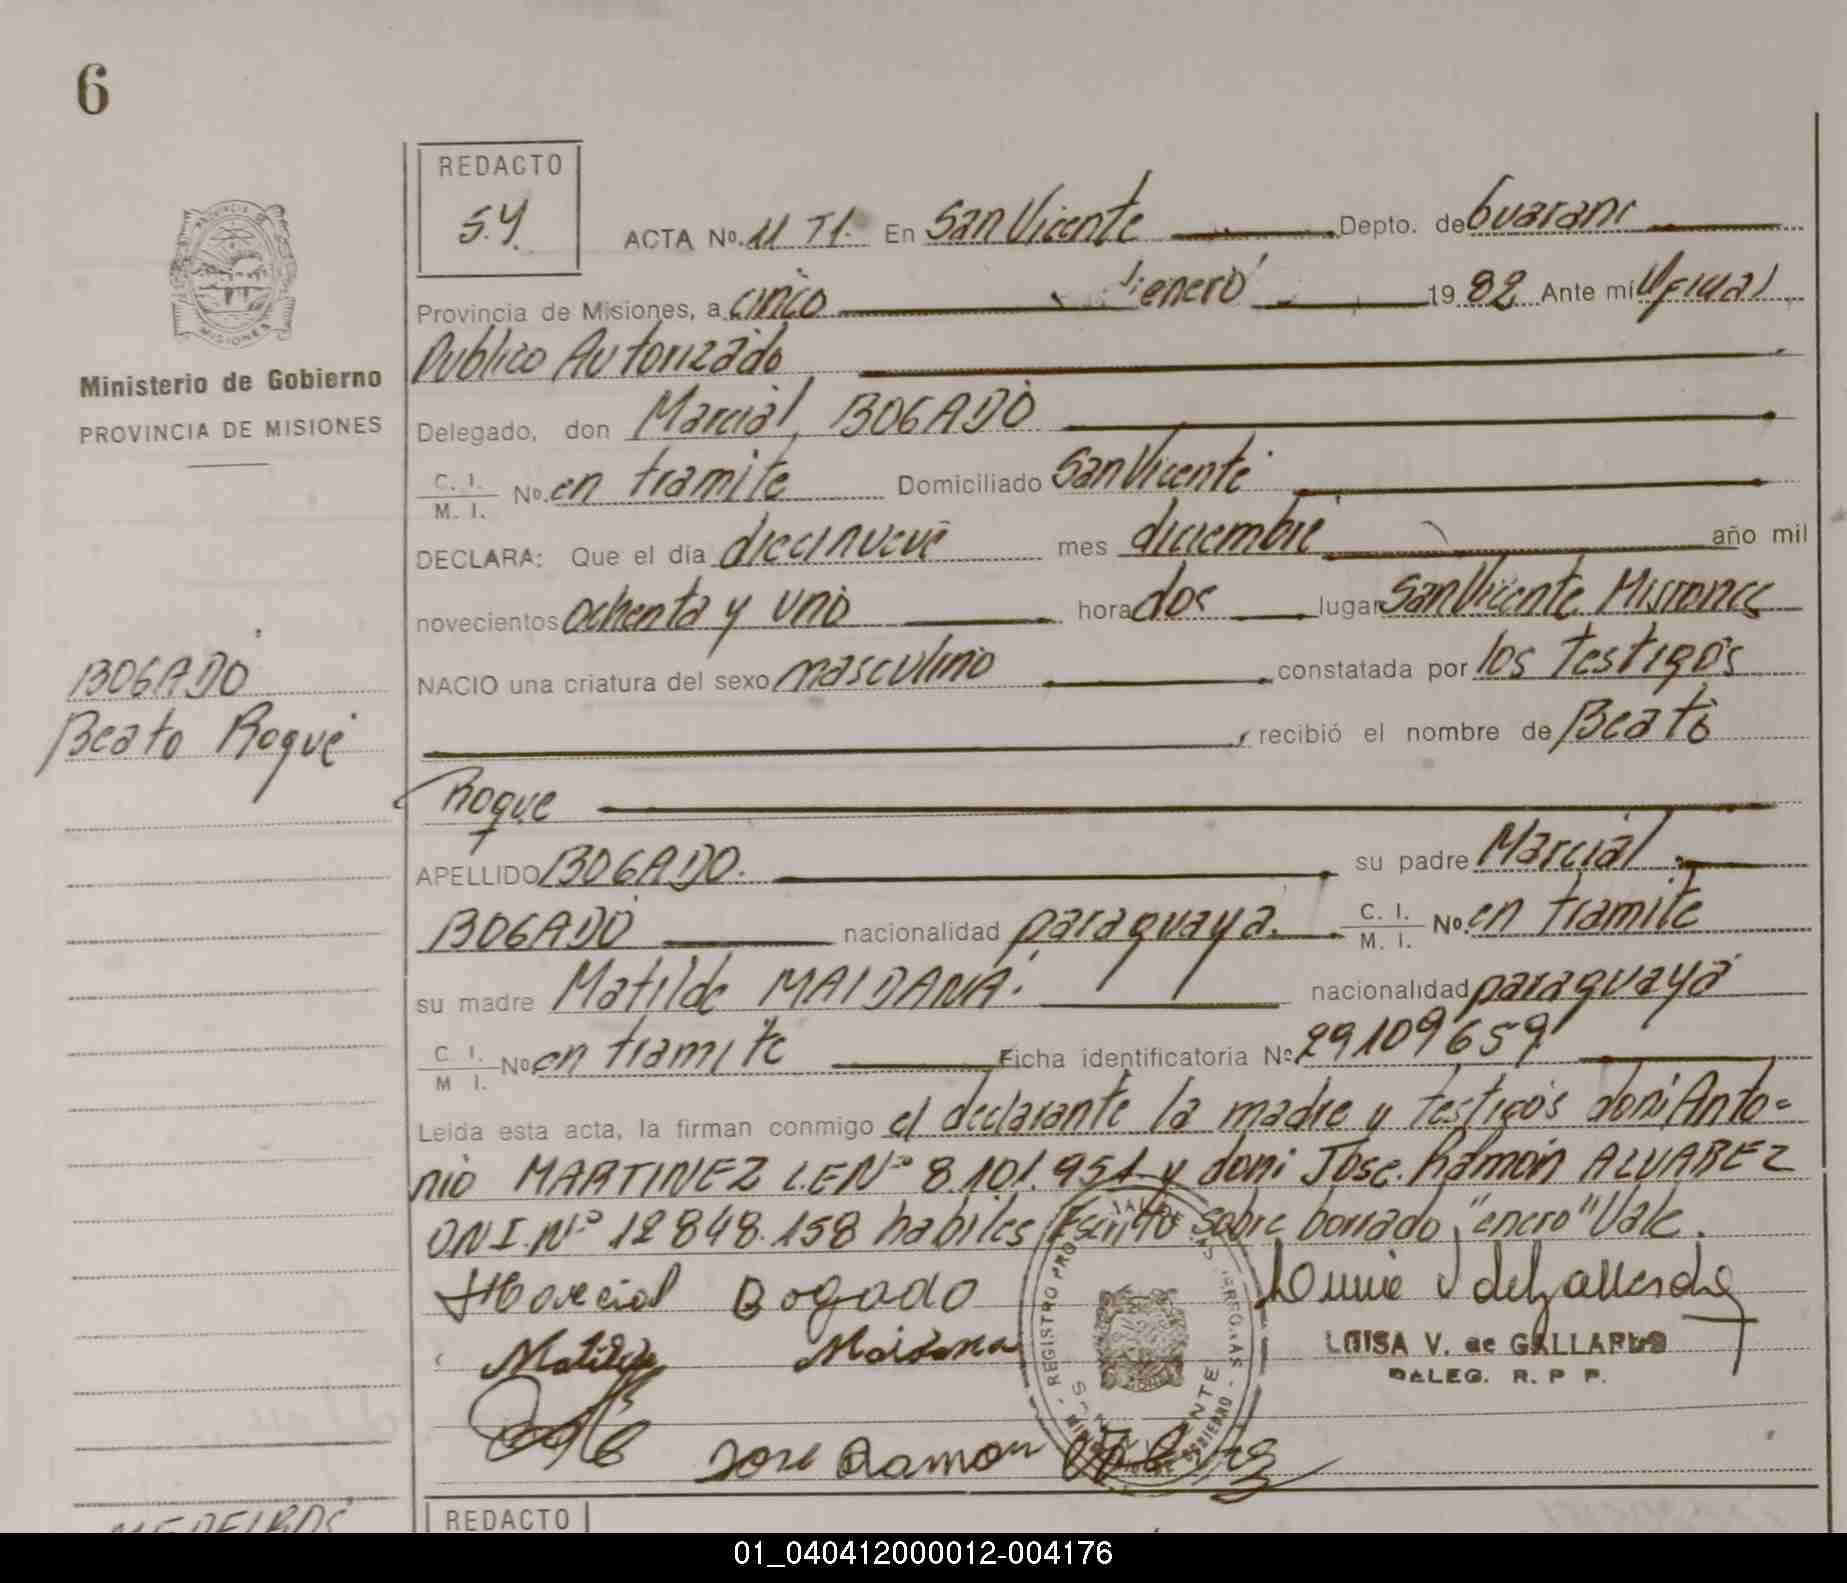 6
REDACTO
S.Y.
ACTA No. 11 T1. En San Vicente Depto. de Guarani
Provincia de Misiones, a cinco "enero" 1982 Ante mi Oficial
Publico Autorizado
Ministerio de Gobierno
PROVINCIA DE MISIONES
Delegado, don Marcial BOGADO
C. I. / M. I. No. en tramite Domiciliado San Vicente
DECLARA: Que el día diecinueve mes diciembre año mil
novecientos ochenta y uno hora dos lugar San Vicente Misiones
BOGADO
NACIO una criatura del sexo masculino constatada por los testigos
Beato Roque
recibió el nombre de Beato
Roque
APELLIDO BOGADO. su padre Marcial
BOGADO nacionalidad paraguaya. C. I. / M. I. No. en tramite
su madre Matilde MAIDANA. nacionalidad paraguaya
C. I. / M. I. No. en tramite Ficha identificatoria No. 29109659
Leída esta acta, la firman conmigo el declarante la madre y testigos don: Anto=
nio MARTINEZ L.E Nº 8.101.951 y don: Jose Ramón ALVAREZ
DNI. Nº 12848.158 habiles Escrito sobre borrado "enero" Vale.
Marcial Bogado
Matilde Maidana
LUISA V. de GALLARDO
DALEG. R. P P.
Jose Ramon
REGISTRO PRO DE LAS PERSONAS
GOBIERNO
REDACTO
MEDEIROS
01_040412000012-004176